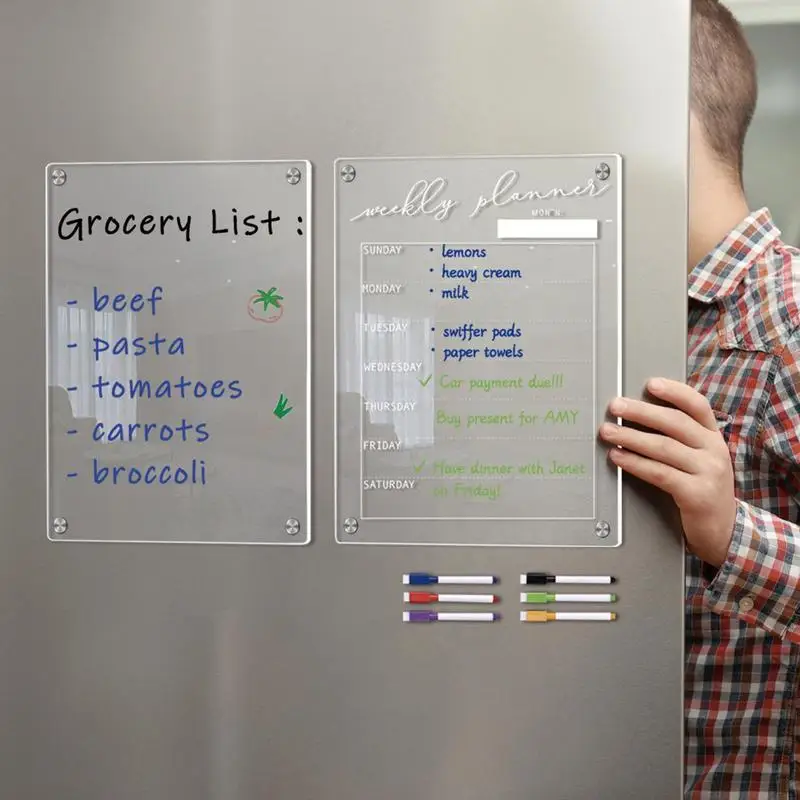 Grocery List :
- beef
- pasta
- tomatoes
- carrots
- broccoli
weekly planner
SUNDAY
• lemons
• heavy cream
MONDAY
• milk
TUESDAY
• swiffer pads
• paper towels
WEDNESDAY
✓ Car payment due!!!
THURSDAY
Buy present for AMY
FRIDAY
✓ Have dinner with Janet
on Friday!
SATURDAY